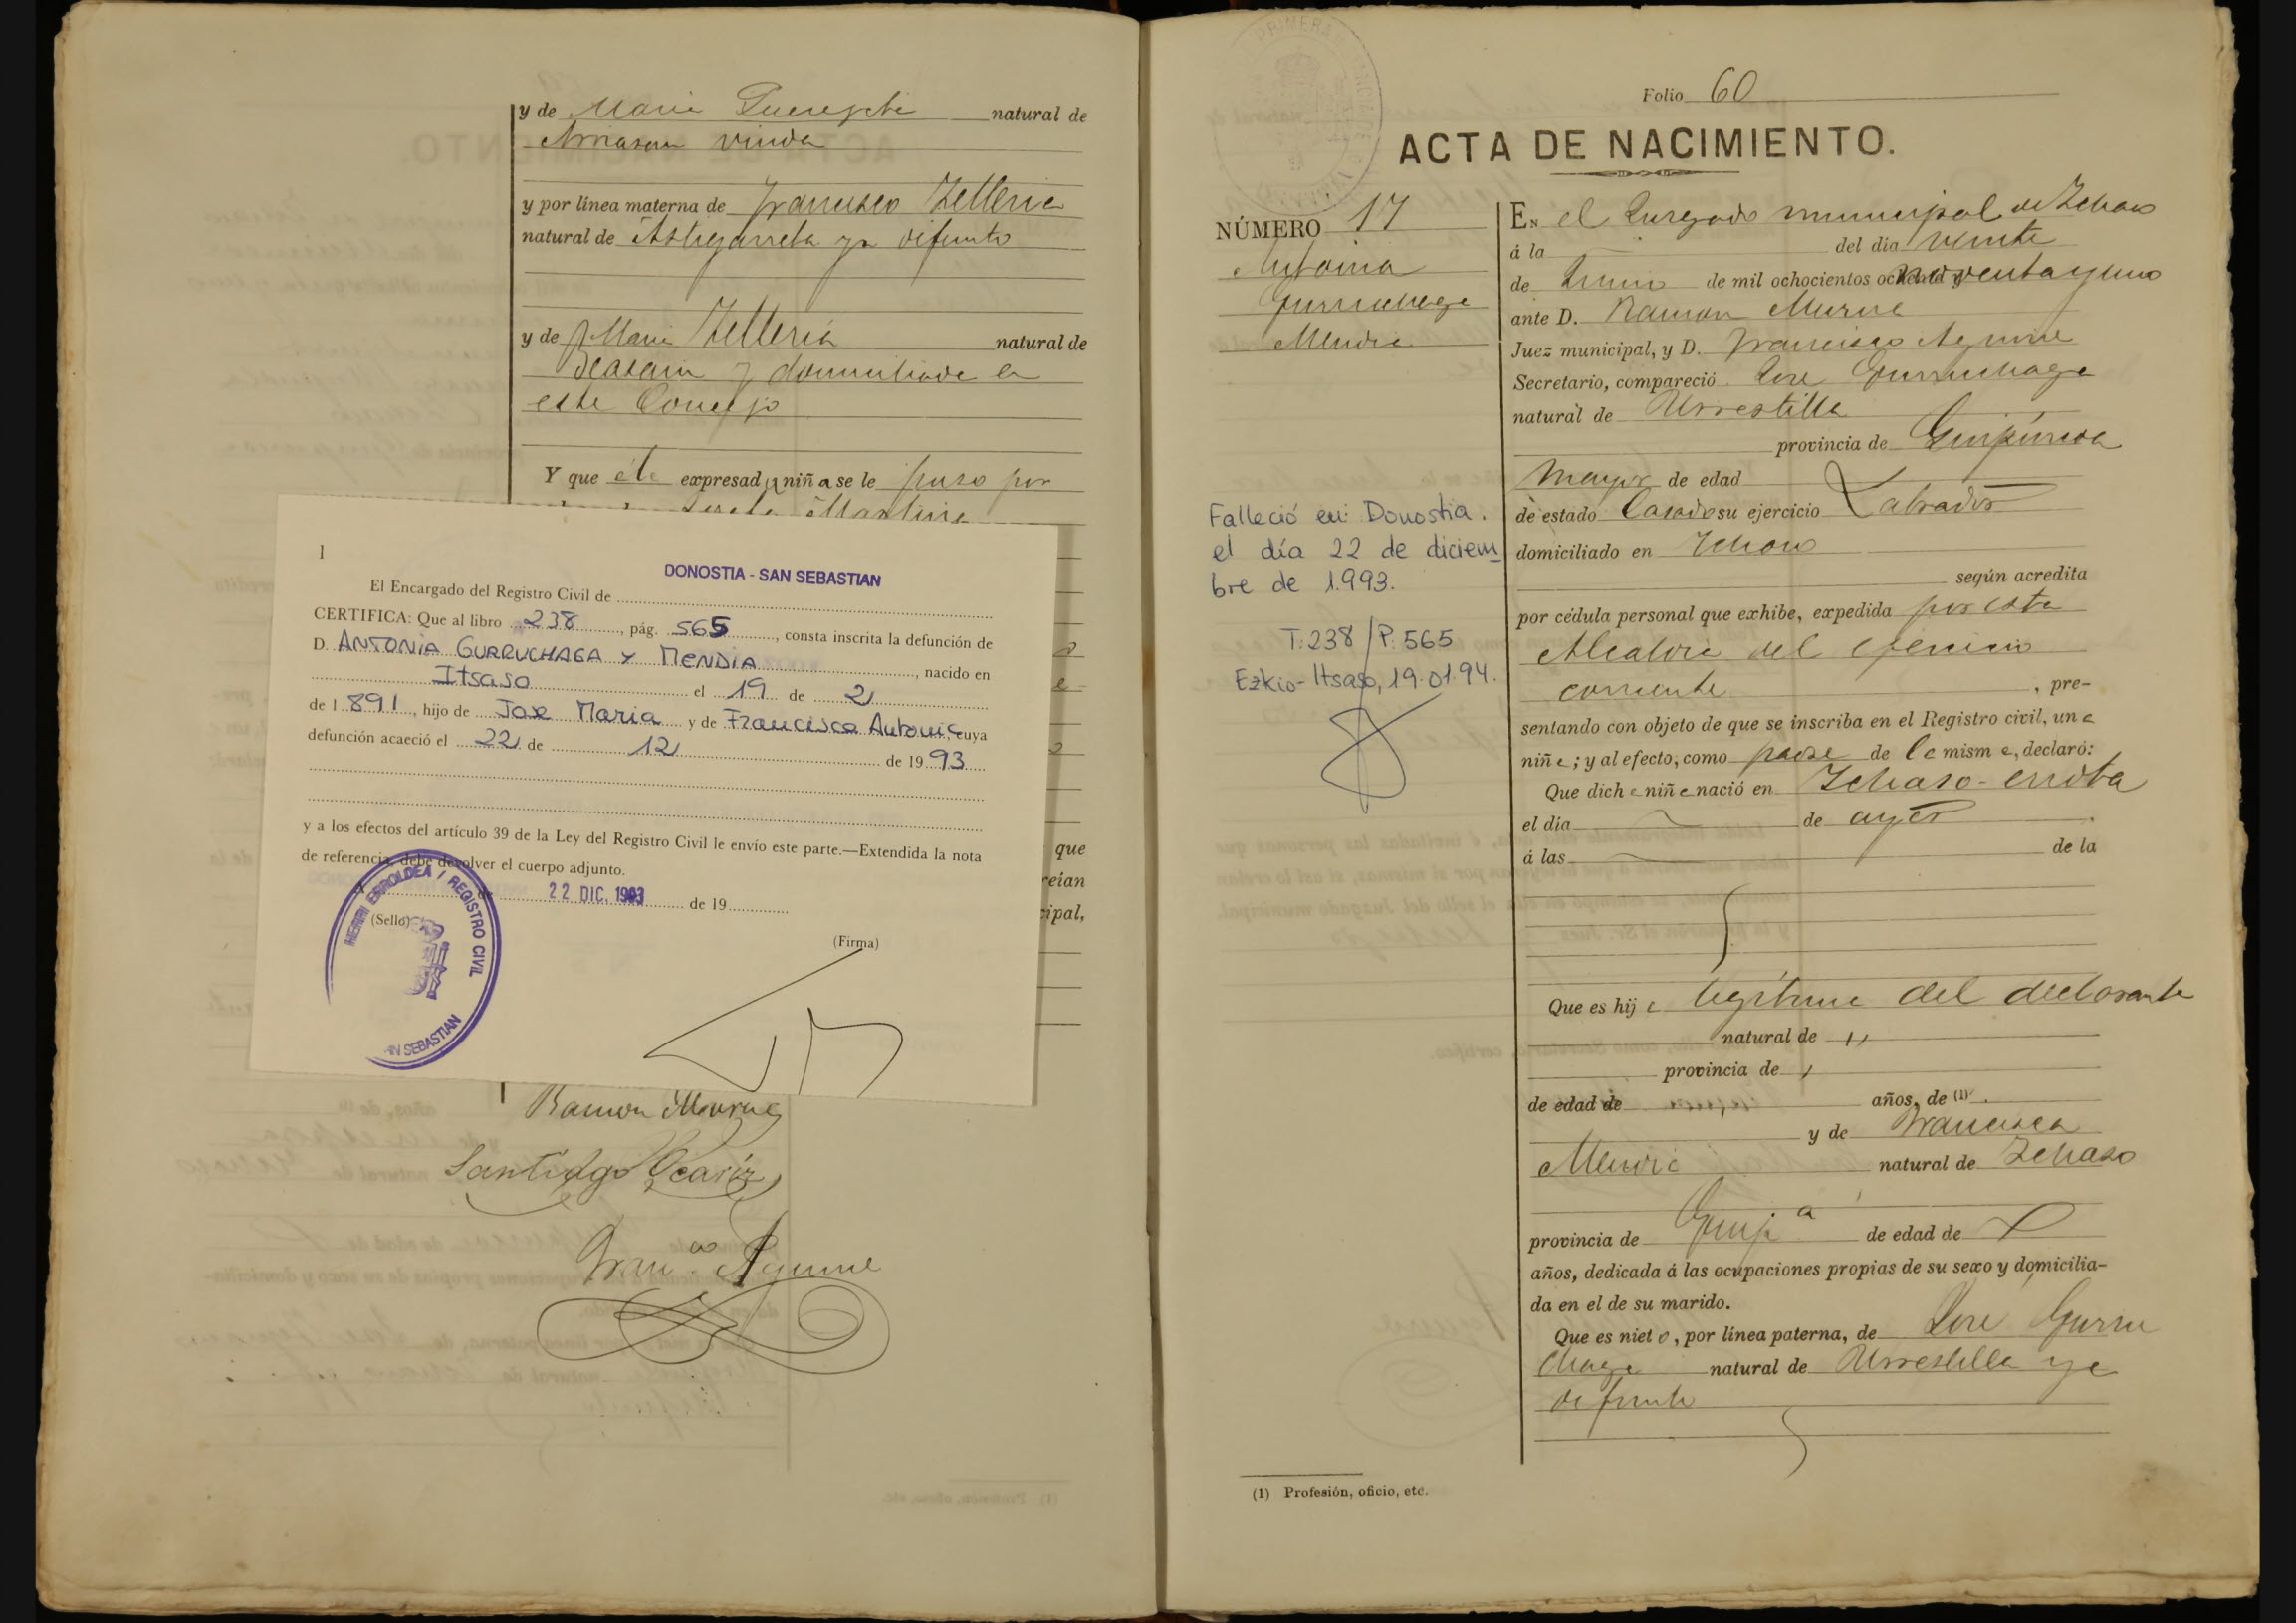 y de Maria natural de
viuda
y por línea materna de Francisco Telleria
natural de Astigarreta ya difunto
y de Maria Telleria natural de
Beasain y domiciliada en
este Concejo
Y que á la expresad a niñ a se le puso por
Martina
1
DONOSTIA - SAN SEBASTIAN
El Encargado del Registro Civil de
CERTIFICA: Que al libro 238, pág. 565, consta inscrita la defunción de
D. ANTONIA GURRUCHAGA Y MENDIA, nacido en
Itsaso el 19 de 2
de 1 891, hijo de Jose Maria y de Francisca Antonia, cuya
defunción acaeció el 22 de 12 de 19 93
y a los efectos del artículo 39 de la Ley del Registro Civil le envío este parte.—Extendida la nota
de referencia, debe devolver el cuerpo adjunto.
22 DIC. 1993 de 19
(Sello)
HERRI ERROLDEA / REGISTRO CIVIL
AN SEBASTIAN
(Firma)
que
reían
cipal,
Ramon Murua
Santiago Ocariz
Fran.co Aguirre
Folio 60
ACTA DE NACIMIENTO.
NÚMERO 17
Antonia
Gurruchaga
Mendia
Falleció en: Donostia.
el día 22 de diciem
bre de 1.993.
T: 238 / P: 565
Ezkio-Itsaso, 19.01.94.
EN el Juzgado municipal de Ichaso
á la del día veinte
de Junio de mil ochocientos ochenta y noventa y uno
ante D. Ramon Murua
Juez municipal, y D. Francisco Aguirre
Secretario, compareció Jose Gurruchaga
natural de Urrestilla
provincia de Guipúzcoa
mayor de edad
de estado Casado su ejercicio Labrador
domiciliado en Ichaso
según acredita
por cédula personal que exhibe, expedida por esta
Alcaldia del ejercicio
corriente, pre-
sentando con objeto de que se inscriba en el Registro civil, un a
niñ a; y al efecto, como padre de la mism a, declaró:
Que dich a niñ a nació en Ichaso-erriba
el día de ayer
á las de la
Que es hij a legitima del declarante
natural de "
provincia de "
de edad de años, de (1)
y de Francisca
Mendia natural de Ichaso
provincia de Guip.a de edad de
años, dedicada á las ocupaciones propias de su sexo y domicilia-
da en el de su marido.
Que es niet o, por línea paterna, de Jose Gurru
chaga natural de Urrestilla ya
difunto
(1) Profesión, oficio, etc.